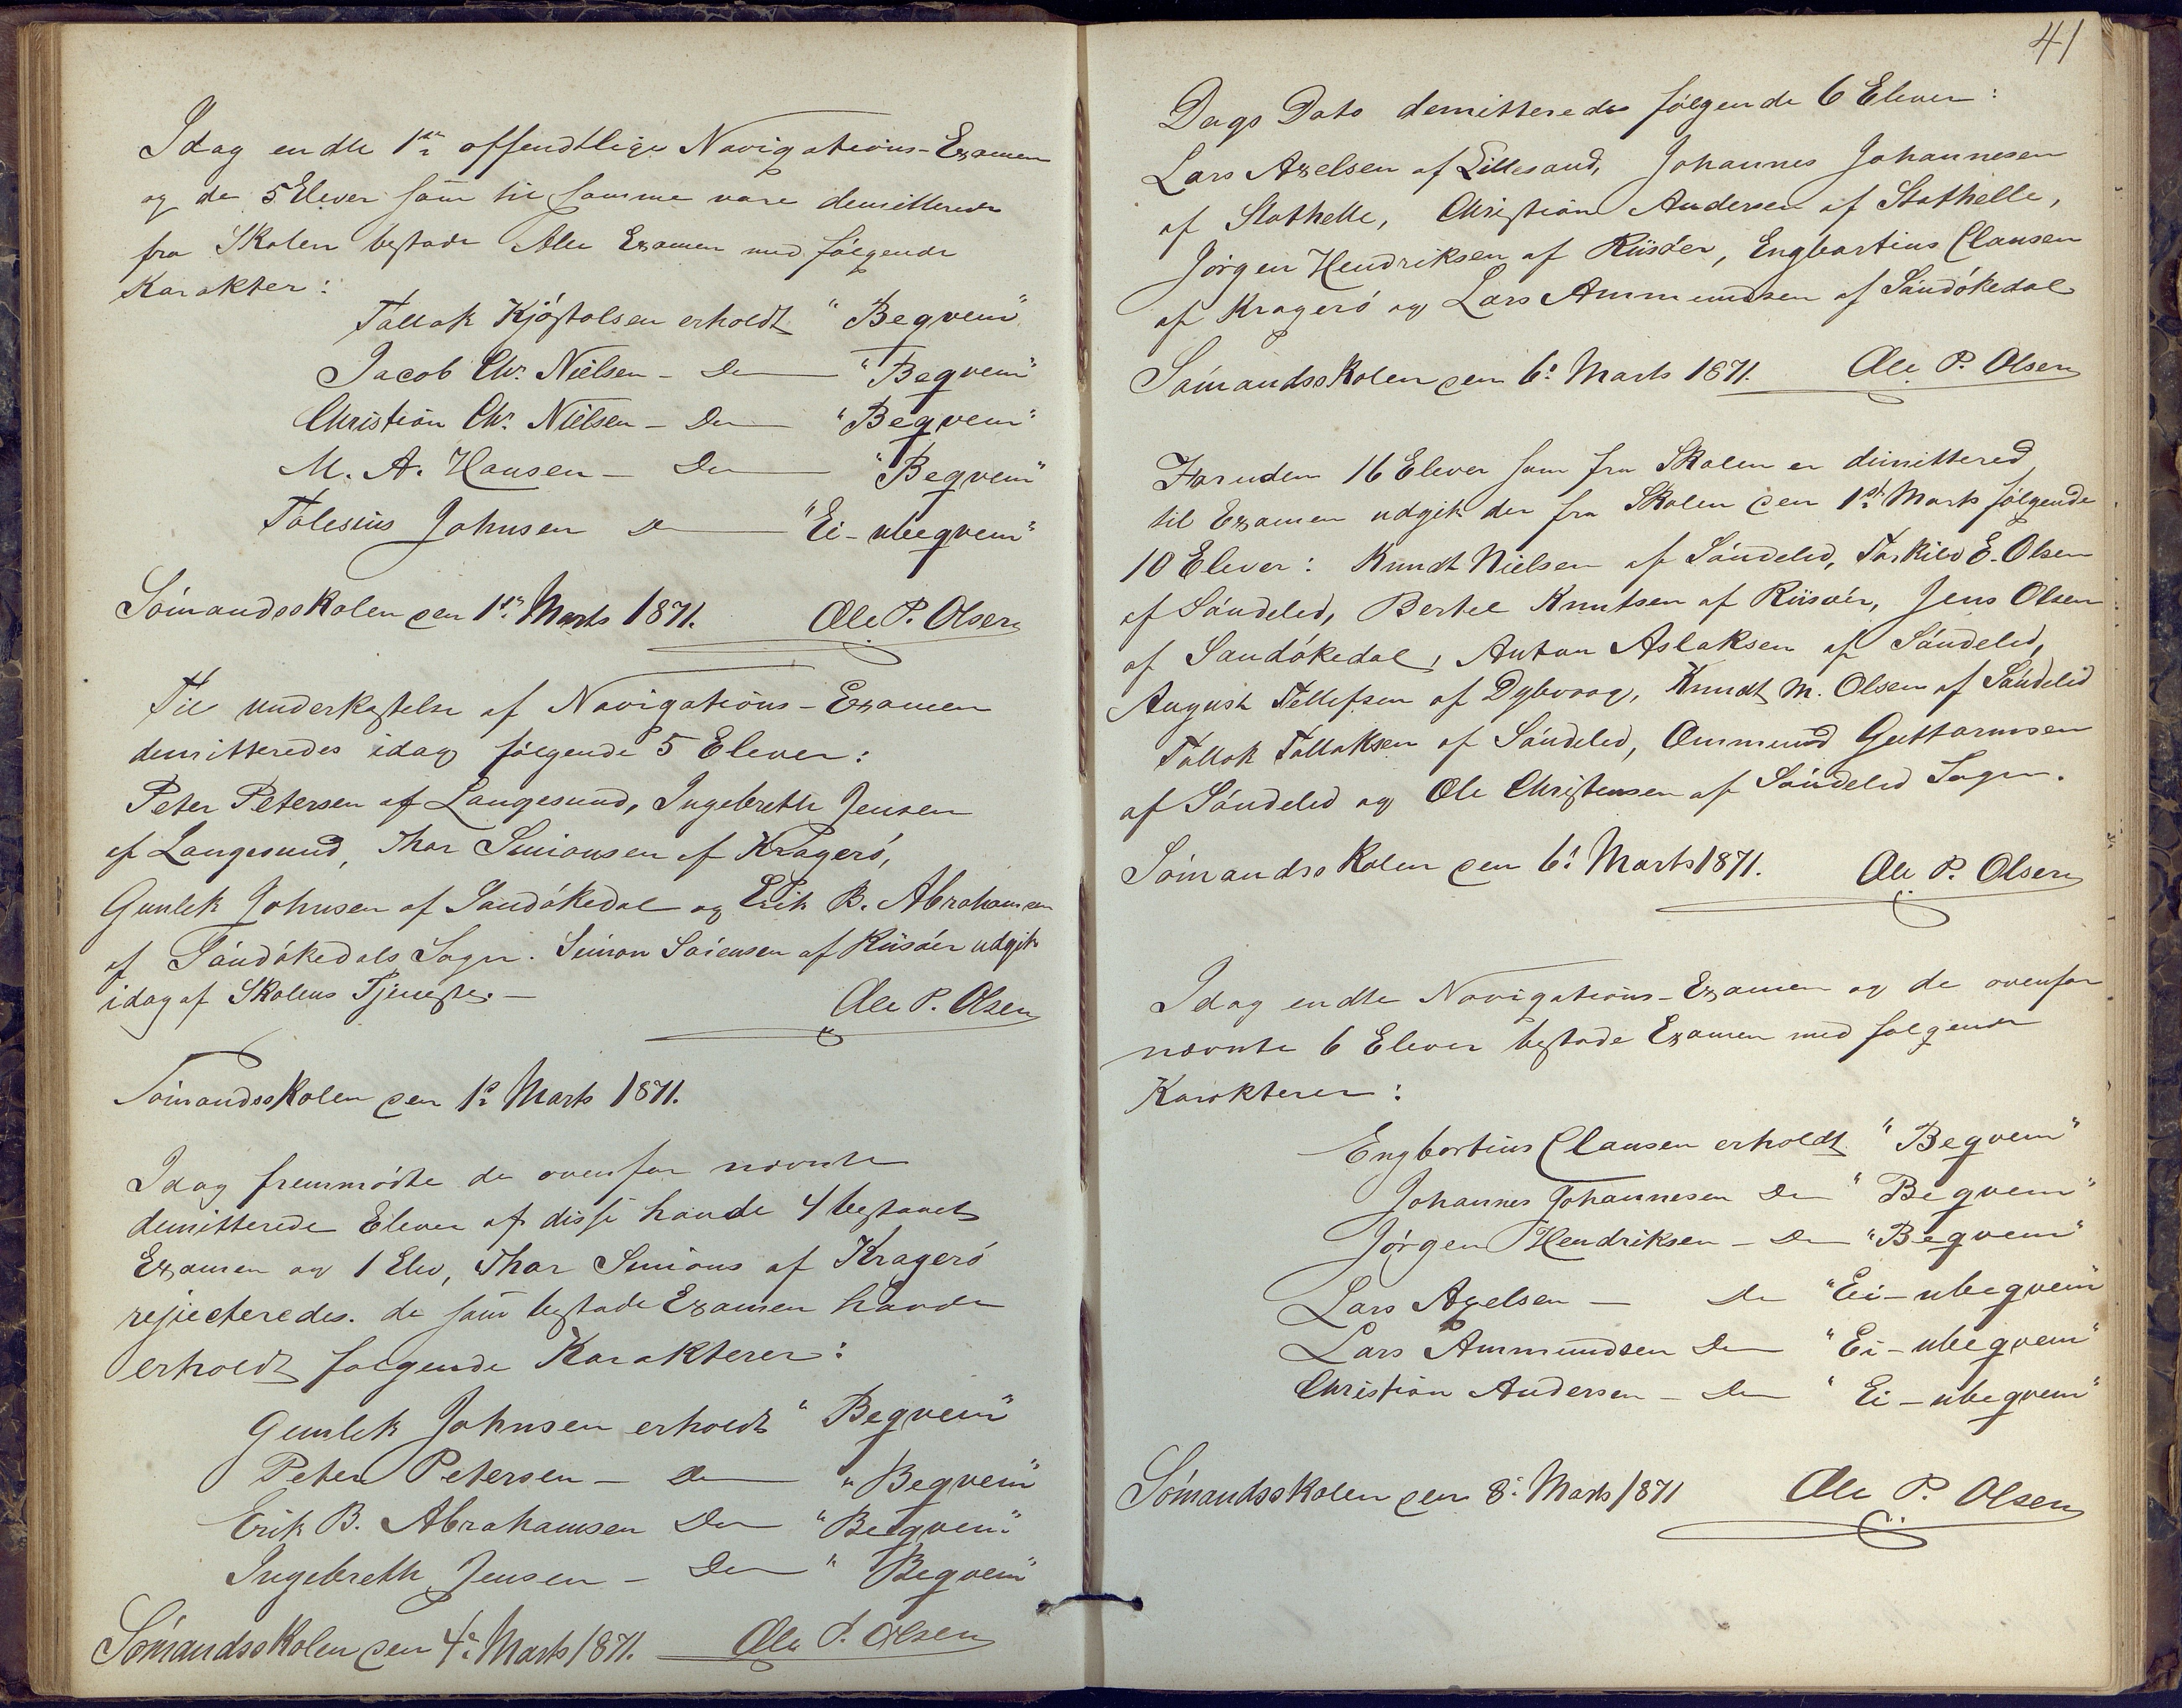 Idag endte 1ste offendtlige Navigations-Examen
og de 5 Elever som til samme vare demitterede
fra Skolen bestode Alle Examen med følgende
Karakter:
Tallak Kjøstolsen erholdt "Begvem"
Jacob Chr. Nielsen - Do "Begvem"
Christian Chr. Nielsen - Do "Begvem"
M. A. Hansen - Do "Begvem"
Johnsen Do "Ei-ubegvem"
Sømandsskolen den 1ste Marts 1871. Ole P. Olsen
Til underkastelse af Navigations-Examen
demitteredes idag følgende 5 Elever:
Peter Petersen af Langesund, Ingebreth Jensen
af Langesund, Thor Simonsen af Kragerø,
Gunlek Johnsen af Sandøkedal og Erik B. Abrahamsen
af Sandøkedals Sogn. Simon Sørensen af Riisøer udgik
idag af Skolens Tjeneste. -
Ole P. Olsen
Sømandsskolen den 1ste Marts 1871.
Idag fremmødte de ovenfor nævnte
demitterede Elever af disse havde 4 bestaaet
Examen og 1 Elev, Thor Simons af Kragerø
rejecteredes. de som bestode Examen havde
erholdt følgende Karakterer:
Gunlek Johnsen erholdt "Begvem"
Peter Petersen - Do "Begvem"
Erik B. Abrahamsen Do "Begvem"
Ingebreth Jensen - Do "Begvem"
Sømandsskolen den 4de Marts 1871. Ole P. Olsen
41
Dags Dato demitteredes følgende 6 Elever:
Lars Axelsen af Lillesand, Johannes Johannesen
af Stathelle, Christian Andersen af Stathelle,
Jørgen Hendriksen af Riisøer, Engbartius Clausen
af Kragerø og Lars Ammundsen af Sandøkedal
Sømandsskolen den 6te Marts 1871. Ole P. Olsen
Foruden 16 Elever som fra Skolen er dimittered
til Examen udgik der fra Skolen den 1ste Marts følgende
10 Elever: Knudt Nielsen af Søndeled, Torkild E. Olsen
af Søndeled, Bertel Knutsen af Riisøer, Jens Olsen
af Sandøkedal, Anton Aslaksen af Søndeled,
August Tellefsen af Dybvaag, Knudt M. Olsen af Søndeled
Tallak Tallaksen af Søndeled, Ommund Guttormsen
af Søndeled og Ole Christensen af Søndeled Sogn.
Sømandsskolen den 6te Marts 1871. Ole P. Olsen
Idag endte Navigations-Examen og de ovenfor
nævnte 6 Elever bestode Examen med følgende
Karakterer:
Engbartius Clausen erholdt "Begvem"
Johannes Johannesen Do "Begvem"
Jørgen Hendriksen - Do "Begvem"
Lars Axelsen - Do "Ei-ubegvem"
Lars Ammundsen Do "Ei-ubegvem"
Christian Andersen - Do "Ei-ubegvem"
Sømandsskolen den 8de Marts 1871 Ole P. Olsen